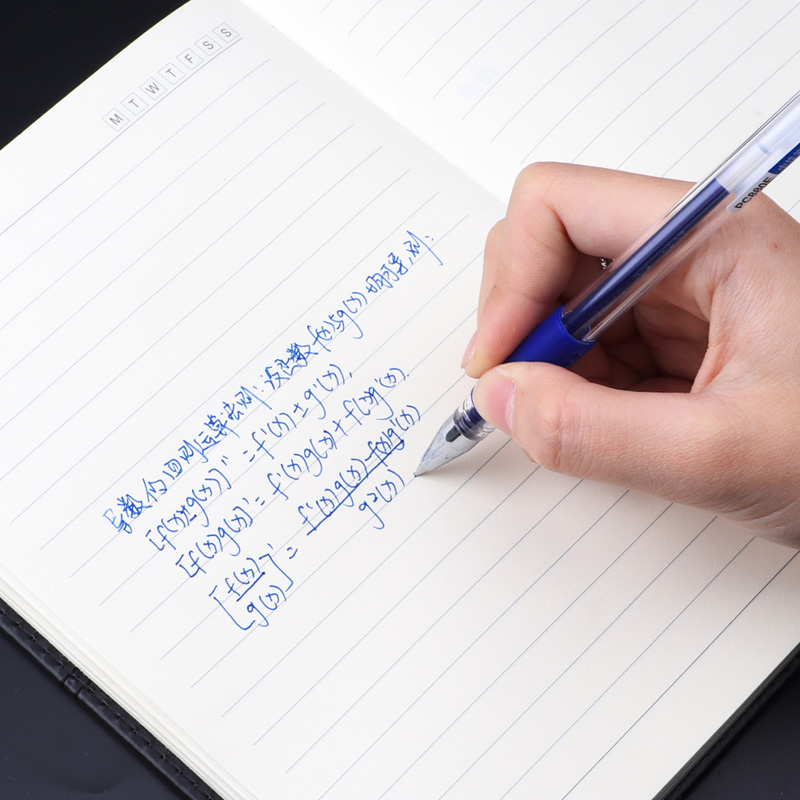 M T W T F S S
导数的四则运算法则：设函数f(x)与g(x)均可导，则：
[f(x)±g(x)]'' = f'(x)±g'(x),
[f(x)g(x)]' = f'(x)g(x)+f(x)g'(x).
[f(x)/g(x)]' = f'(x)g(x)-f(x)g'(x)/g2(x)